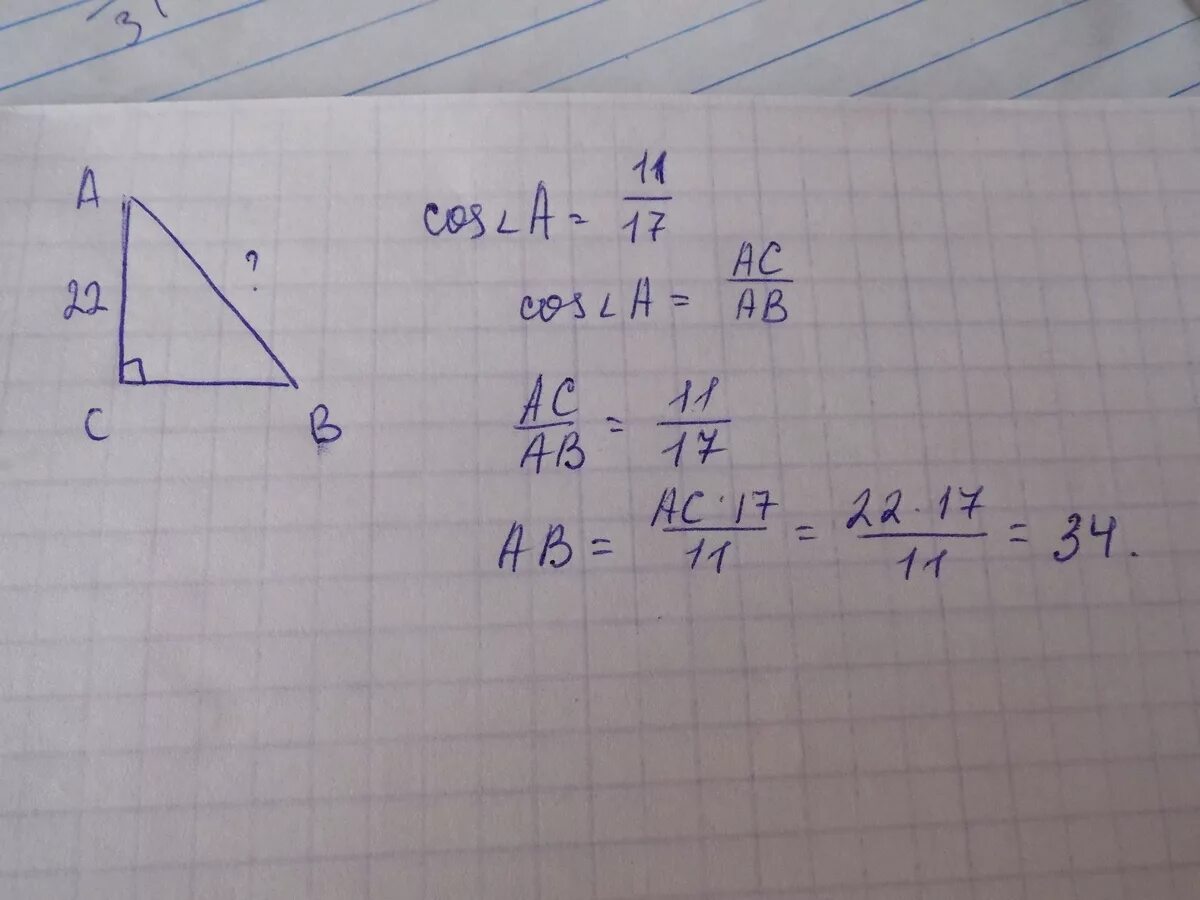 3
A
22
?
C
B
cos∠A = 11/17
cos∠A = AC/AB
AC/AB = 11/17
AB = AC·17/11 = 22·17/11 = 34.